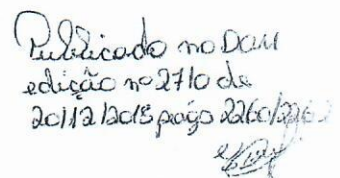 Publicado no DOM
edição nº 2710 de
20/12/2018 págs 2260/